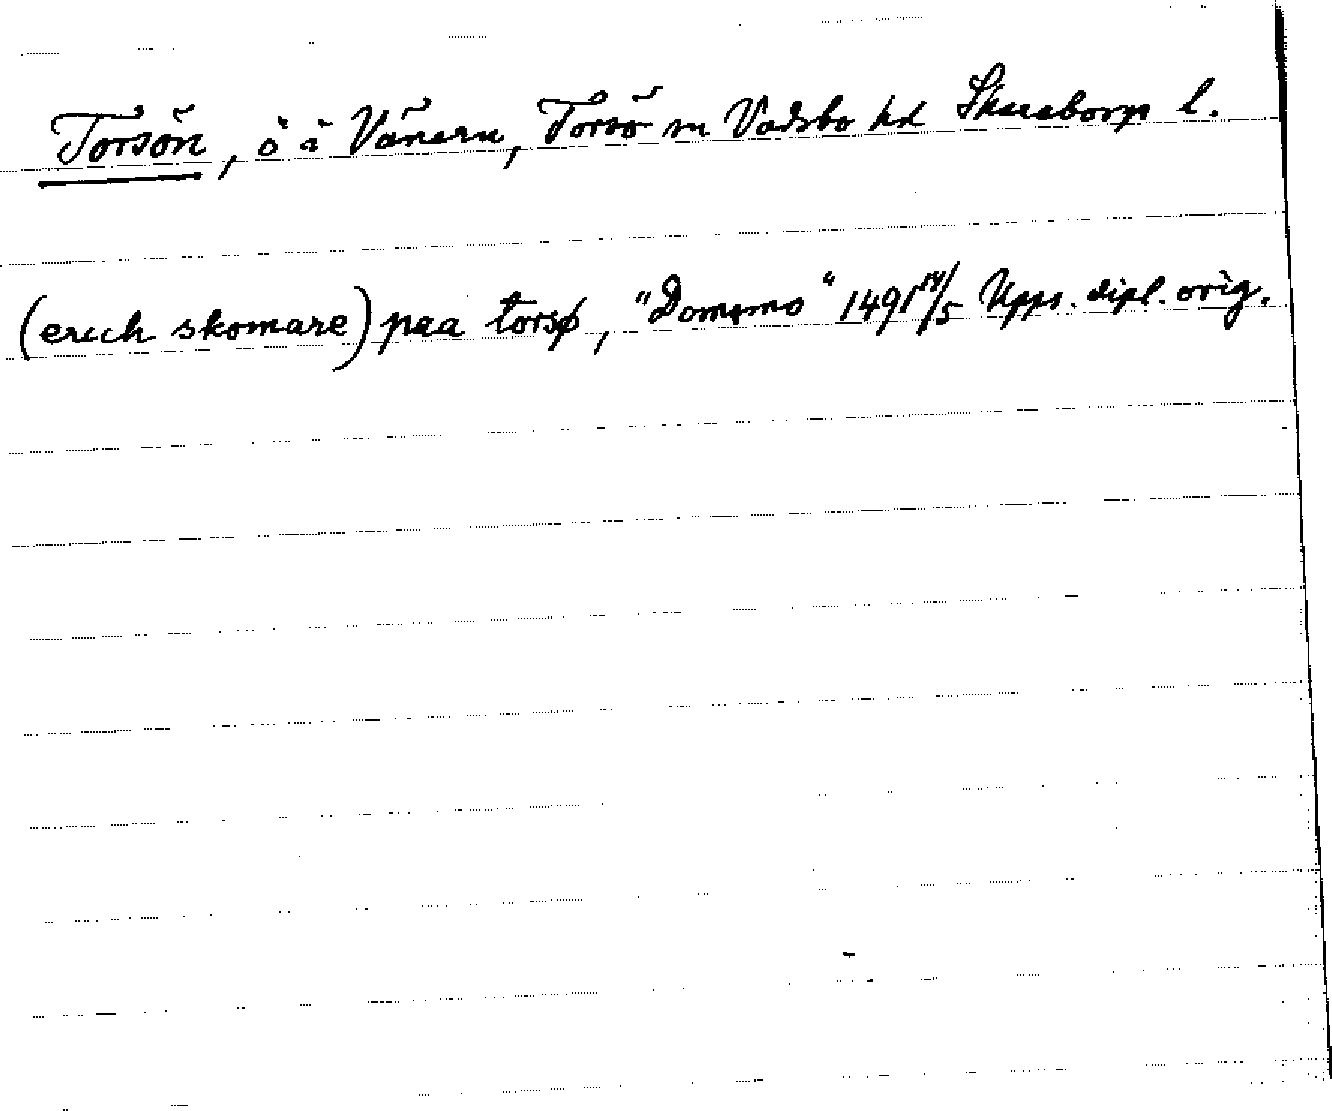 Torsön, ö i Vänern, Torsö sn Vadsbo hd Skaraborgs l.
(erich skomare) paa torsø, "Domømo" 1491 14/5 Upps. dipl. orig.